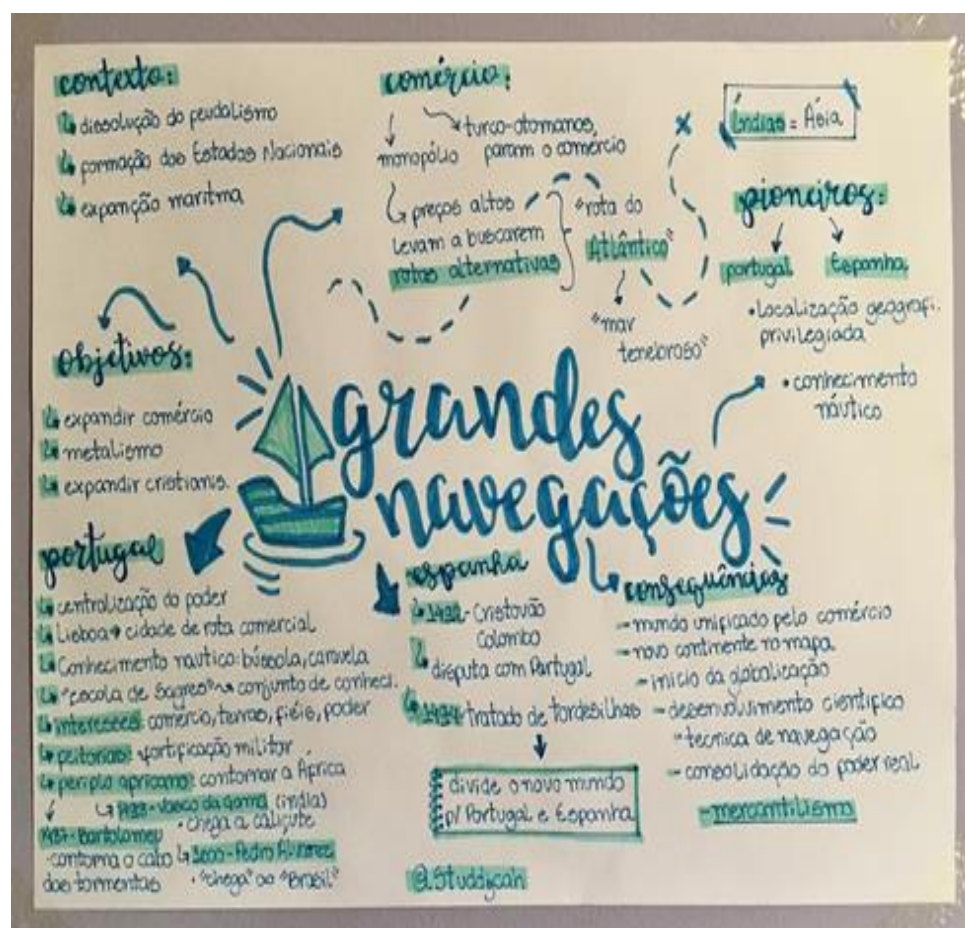 contexto:
↳ dissolução do feudalismo
↳ formação dos Estados Nacionais
↳ expanção marítma
comércio:
monopólio
turco-otomanos,
param o comércio
↳ preços altos
levam a buscarem
rotas alternativas
"rota do
Atlântico"
"mar
tenebroso"
Índias = Ásia
pioneiros:
portugal Espanha
•localização geografi.
privilegiada
•conhecimento
náutico
objetivos:
↳ expandir comércio
↳ metalismo
↳ expandir cristianis.
grandes
navegações
portugal
↳ centralização do poder
↳ Lisboa→ cidade de rota comercial
↳ Conhecimento nautico: bússola, caravela
↳ "escola de Sagres"→ conjunto de conheci.
↳ interesses: comercio, terras, fiéis, poder
↳ feitorias: fortificação militar
↳ periplo africano: contornar a África
Vasco da gama (índias)
•chega a calicute
Bartolomeu
•contorna o cabo
das tormentas
↳ 1500-Pedro Álvares
•"chega" ao "Brasil"
espanha
↳ 1492-Cristovão
Colombo
↳ disputa com Portugal
↳ 1494-tratado de tordesilhas
divide o novo mundo
p/ Portugal e Espanha
consequências
-mundo unificado pelo comércio
-novo continente no mapa
-inicio da globalização
-desenvolvimento científico
"tecnica de navegação
-consolidação do poder real
-mercantilismo
@.Studdycah